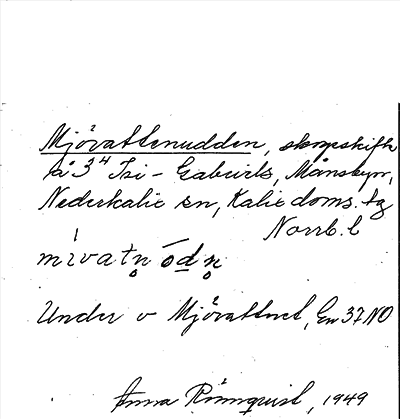 Mjövattenudden, skogsskifte
på 3⁴ Isi-Gabriels, Månsbyn,
Nederkalix sn, Kalix doms. tg
Norrb. l
mívatn̥ ódn̥
Under o Mjövattnet, En 37 NO
Anna Rönnqvist, 1949